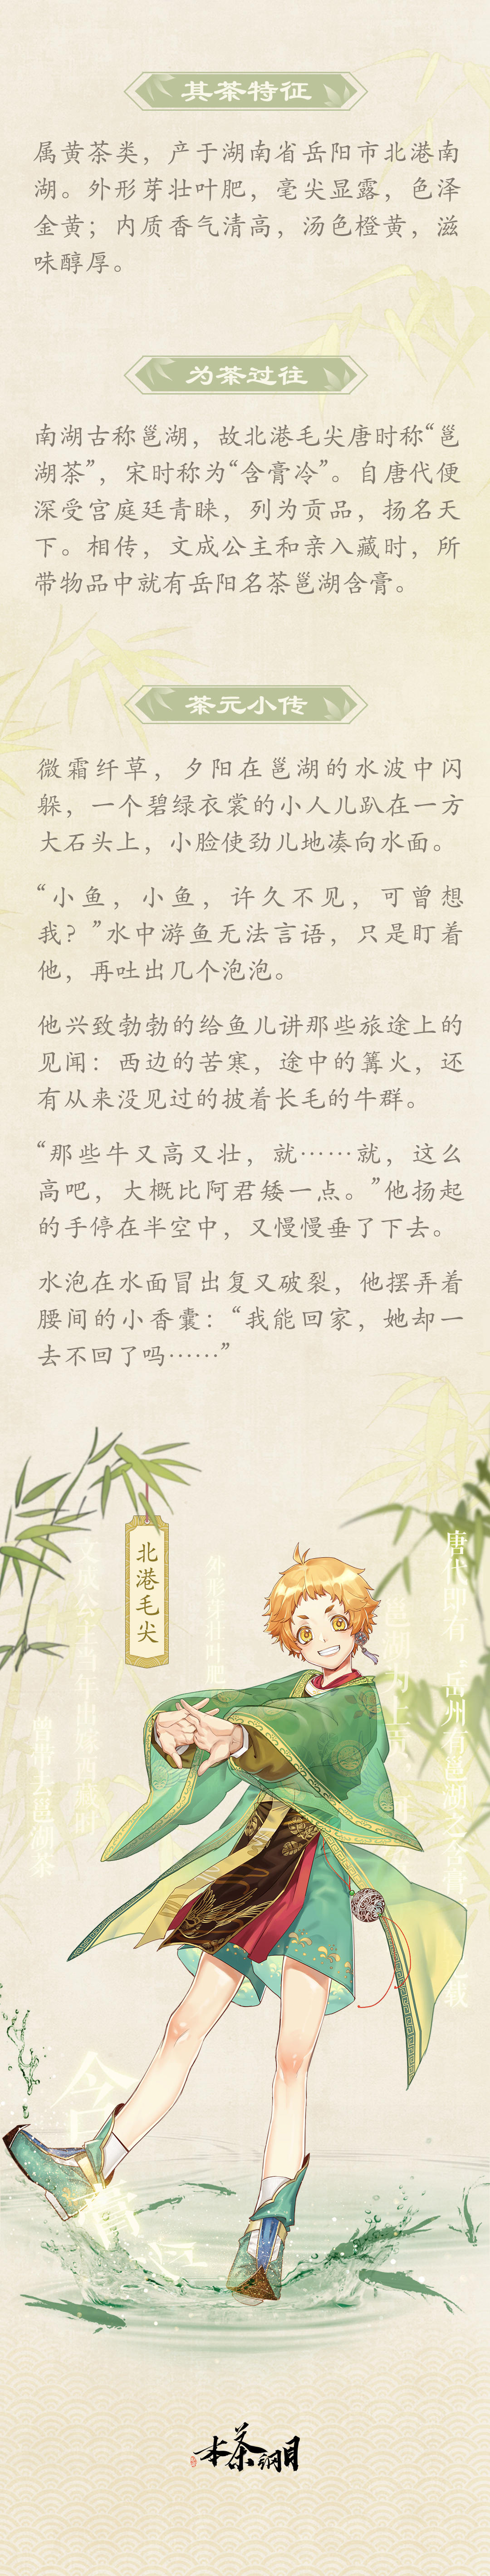 其茶特征
属黄茶类，产于湖南省岳阳市北港南
湖。外形芽壮叶肥，毫尖显露，色泽
金黄；内质香气清高，汤色橙黄，滋
味醇厚。
为茶过往
南湖古称邕湖，故北港毛尖唐时称“邕
湖茶”，宋时称为“含膏冷”。自唐代便
深受宫庭廷青睐，列为贡品，扬名天
下。相传，文成公主和亲入藏时，所
带物品中就有岳阳名茶邕湖含膏。
茶元小传
微霜纤草，夕阳在邕湖的水波中闪
躲，一个碧绿衣裳的小人儿趴在一方
大石头上，小脸使劲儿地凑向水面。
“小鱼，小鱼，许久不见，可曾想
我？”水中游鱼无法言语，只是盯着
他，再吐出几个泡泡。
他兴致勃勃的给鱼儿讲那些旅途上的
见闻：西边的苦寒，途中的篝火，还
有从来没见过的披着长毛的牛群。
“那些牛又高又壮，就……就，这么
高吧，大概比阿君矮一点。”他扬起
的手停在半空中，又慢慢垂了下去。
水泡在水面冒出复又破裂，他摆弄着
腰间的小香囊：“我能回家，她却一
去不回了吗……”
北港毛尖
唐代即有
岳州有邕湖之含膏
载
文成公主
出嫁西藏时
曾带去邕湖茶
外形芽壮叶肥
含
膏
本茶纲目